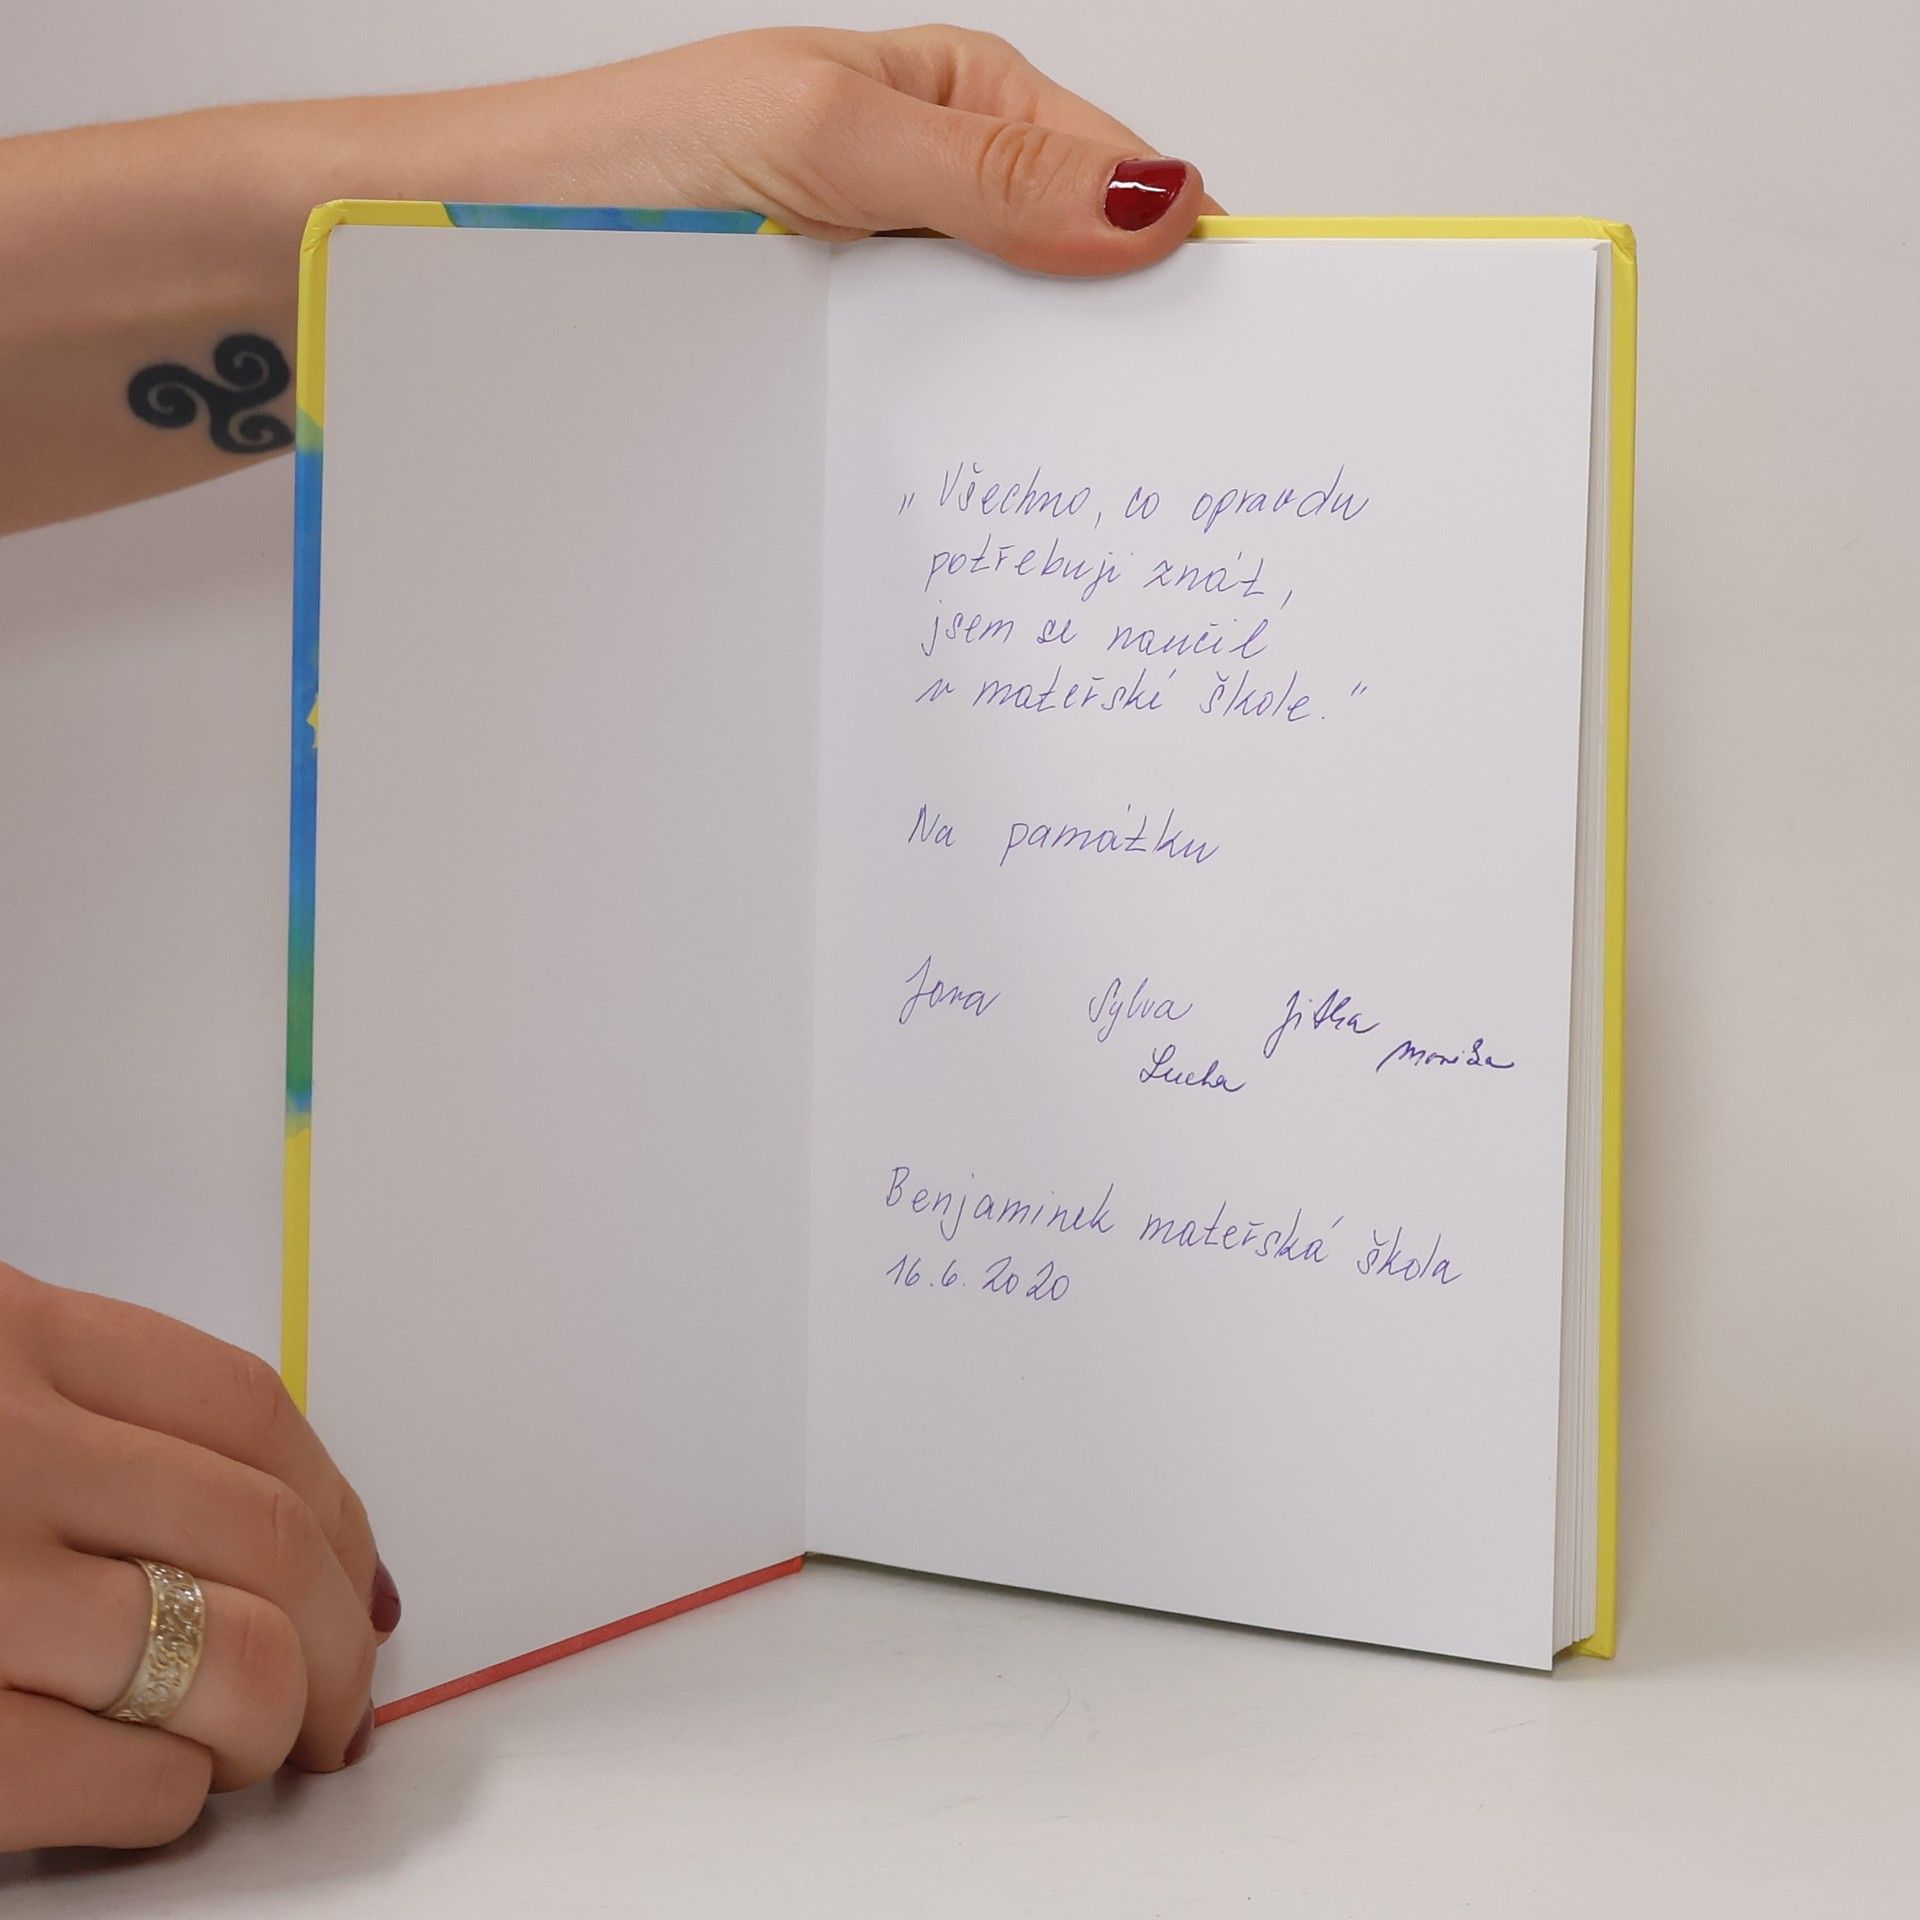 „Všechno, co opravdu
potřebuji znát,
jsem se naučil
v mateřské škole.“
Na památku
Jana Sylva Jitka Monika
Lucka
Benjamínek mateřská škola
16.6.2020